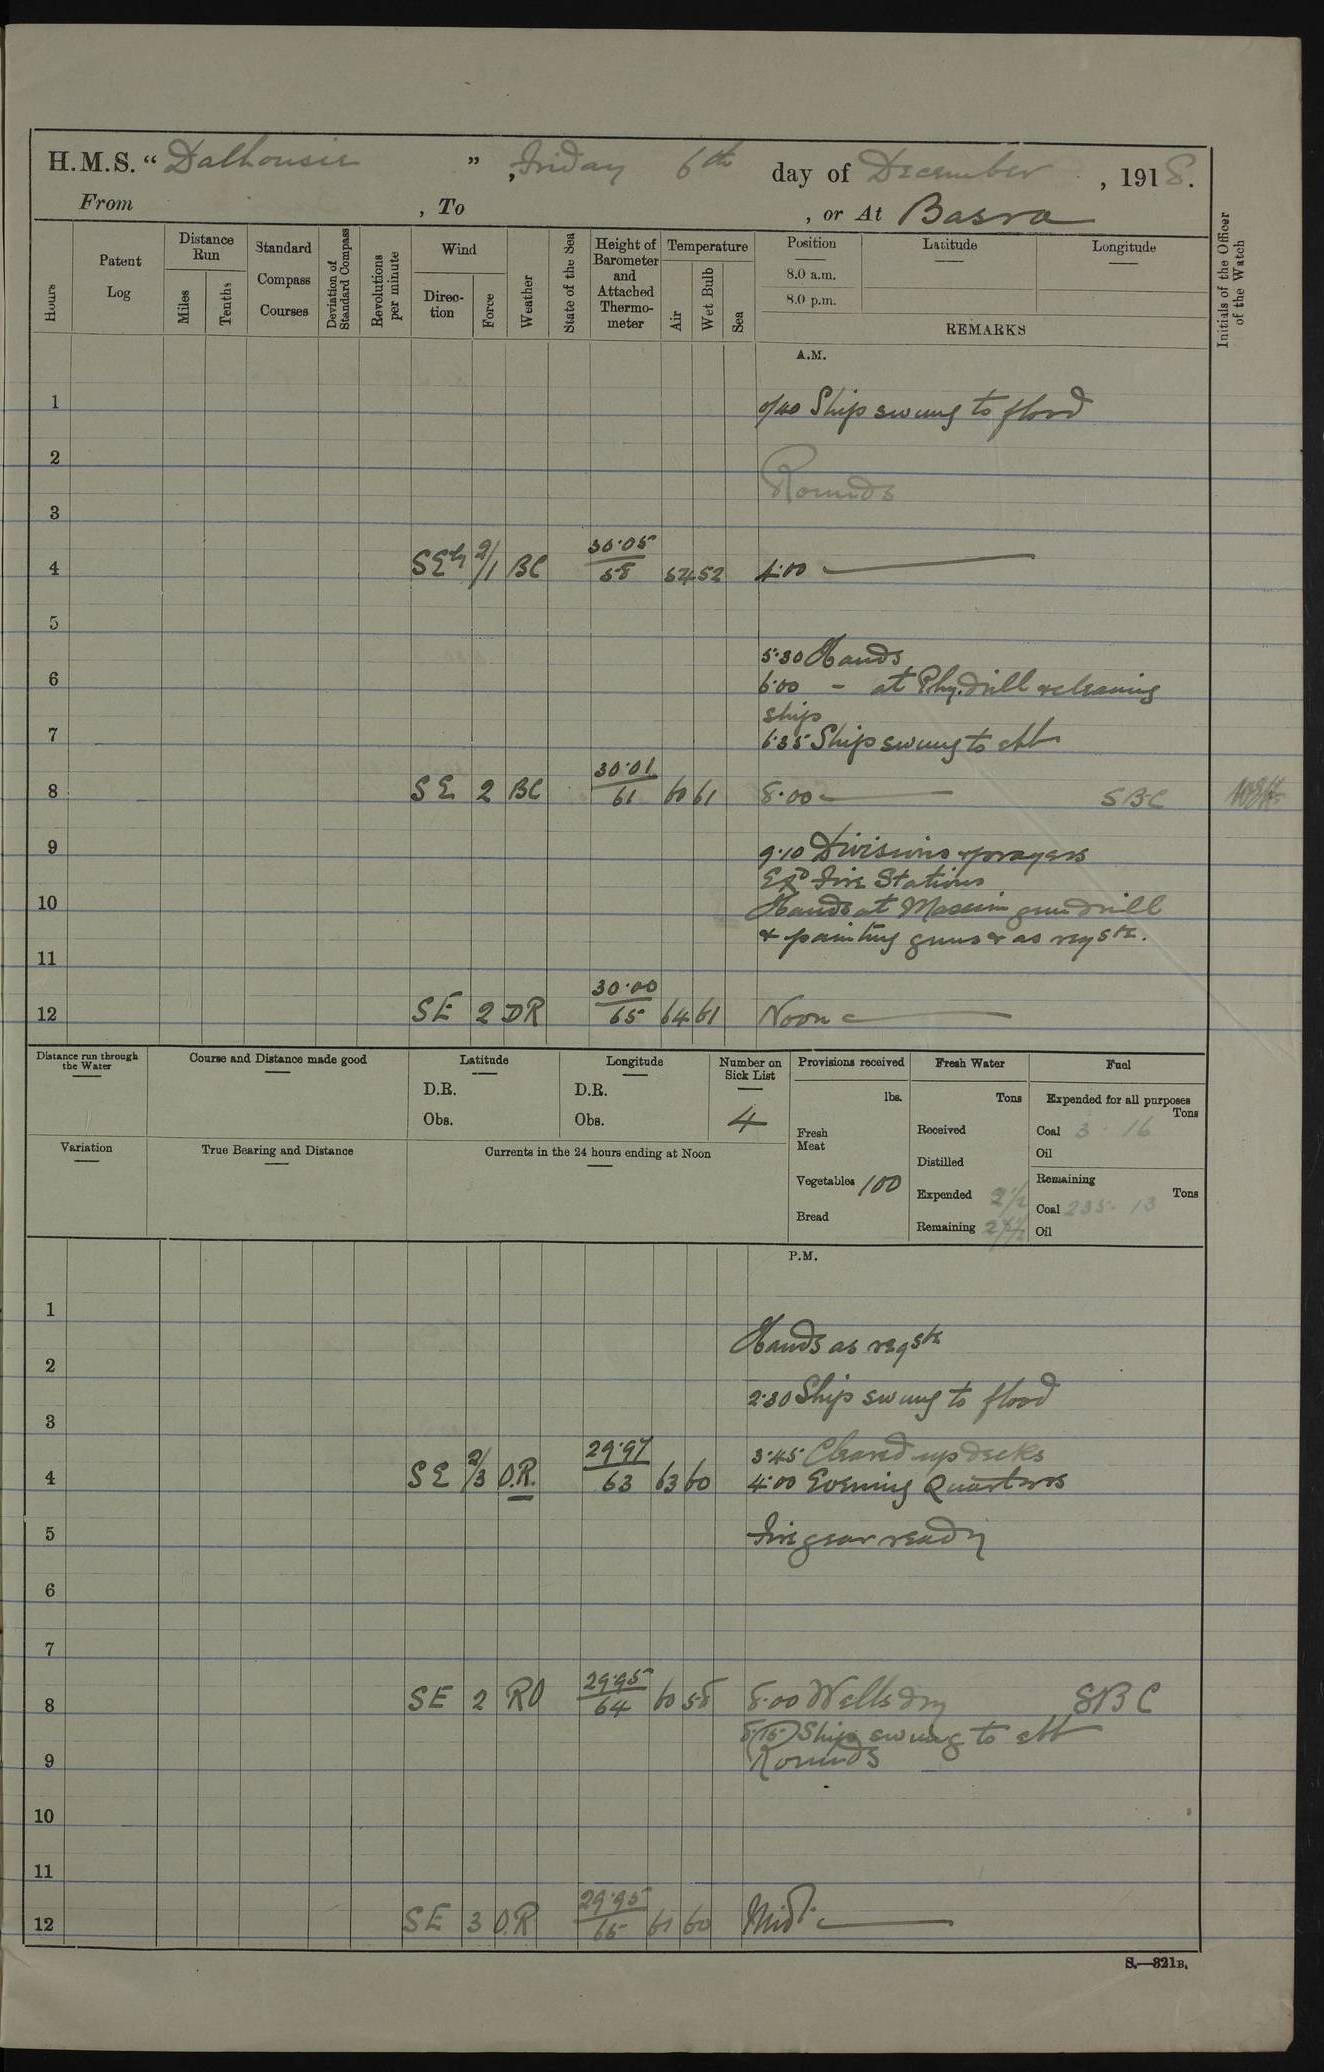 H.M.S. “ Dalhousie ” , Friday 6th day of December , 1918.
From , To , or At Basra
Hours
Patent Log
Distance Run
Miles
Tenths
Standard Compass Courses
Deviation of Standard Compass
Revolutions per minute
Wind
Direc-tion
Force
Weather
State of the Sea
Height of Barometer and Attached Thermo-meter
Temperature
Air
Wet Bulb
Sea
Position Latitude Longitude
8.0 a.m.
8.0 p.m.
REMARKS
Initials of the Officer of the Watch
A.M.
1 0/40 Ship swung to flood
2
Rounds
3
4 SEly 2/1 BC 30.05 58 54 52 4.00
5
5.30 Hands
6 6.00 - at Phy. drill & cleaning
ship
7 6.35 Ship swung to ebb
8 SE 2 BC 30.01 61 60 61 8.00 SBC
9 9.10 Divisions & prayers
Exd Fire Stations
10 Hands at Maxim gun drill
& painting guns & as reqste.
11
12 SE 2 DR 30.00 65 64 61 Noon
Distance run through the Water
Course and Distance made good
Latitude
D.R.
Obs.
Longitude
D.R.
Obs.
Number on Sick List
4
Provisions received
lbs.
Fresh Meat
Vegetables 100
Bread
Fresh Water
Tons
Received
Distilled
Expended 2½
Remaining
Fuel
Expended for all purposes
Tons
Coal 3 . 16
Oil
Remaining
Tons
Coal 235. 13
Oil
Variation
True Bearing and Distance
Currents in the 24 hours ending at Noon
P.M.
1
Hands as reqste
2
2.30 Ship swung to flood
3
3.45 Cleared up decks
4 SE 2/3 O.R. 29.97 63 63 60 4.00 Evening Quarters
5 Fire gear ready
6
7
8 SE 2 RO 29.95 64 60 58 8.00 Wells dry SBC
8/15 Ship swung to ebb
9 Rounds
10
11
12 SE 3 O.R 29.95 65 61 60 Midt.
S.—321B.